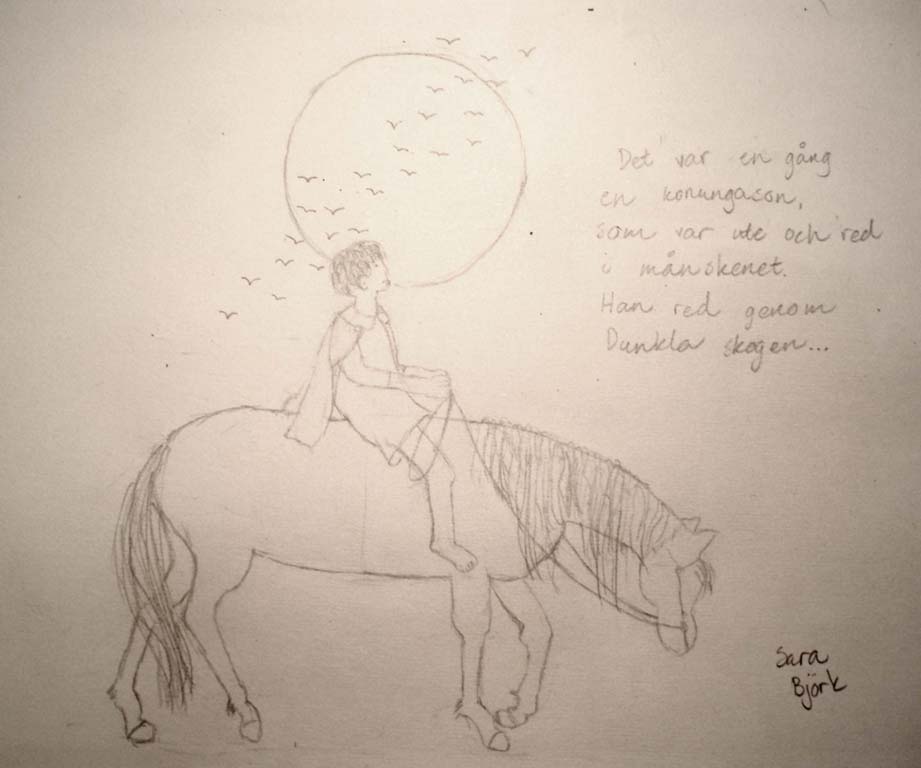 Det var en gång
en konungason,
som var ute och red
i månskenet.
Han red genom
Dunkla skogen...
Sara
Björk